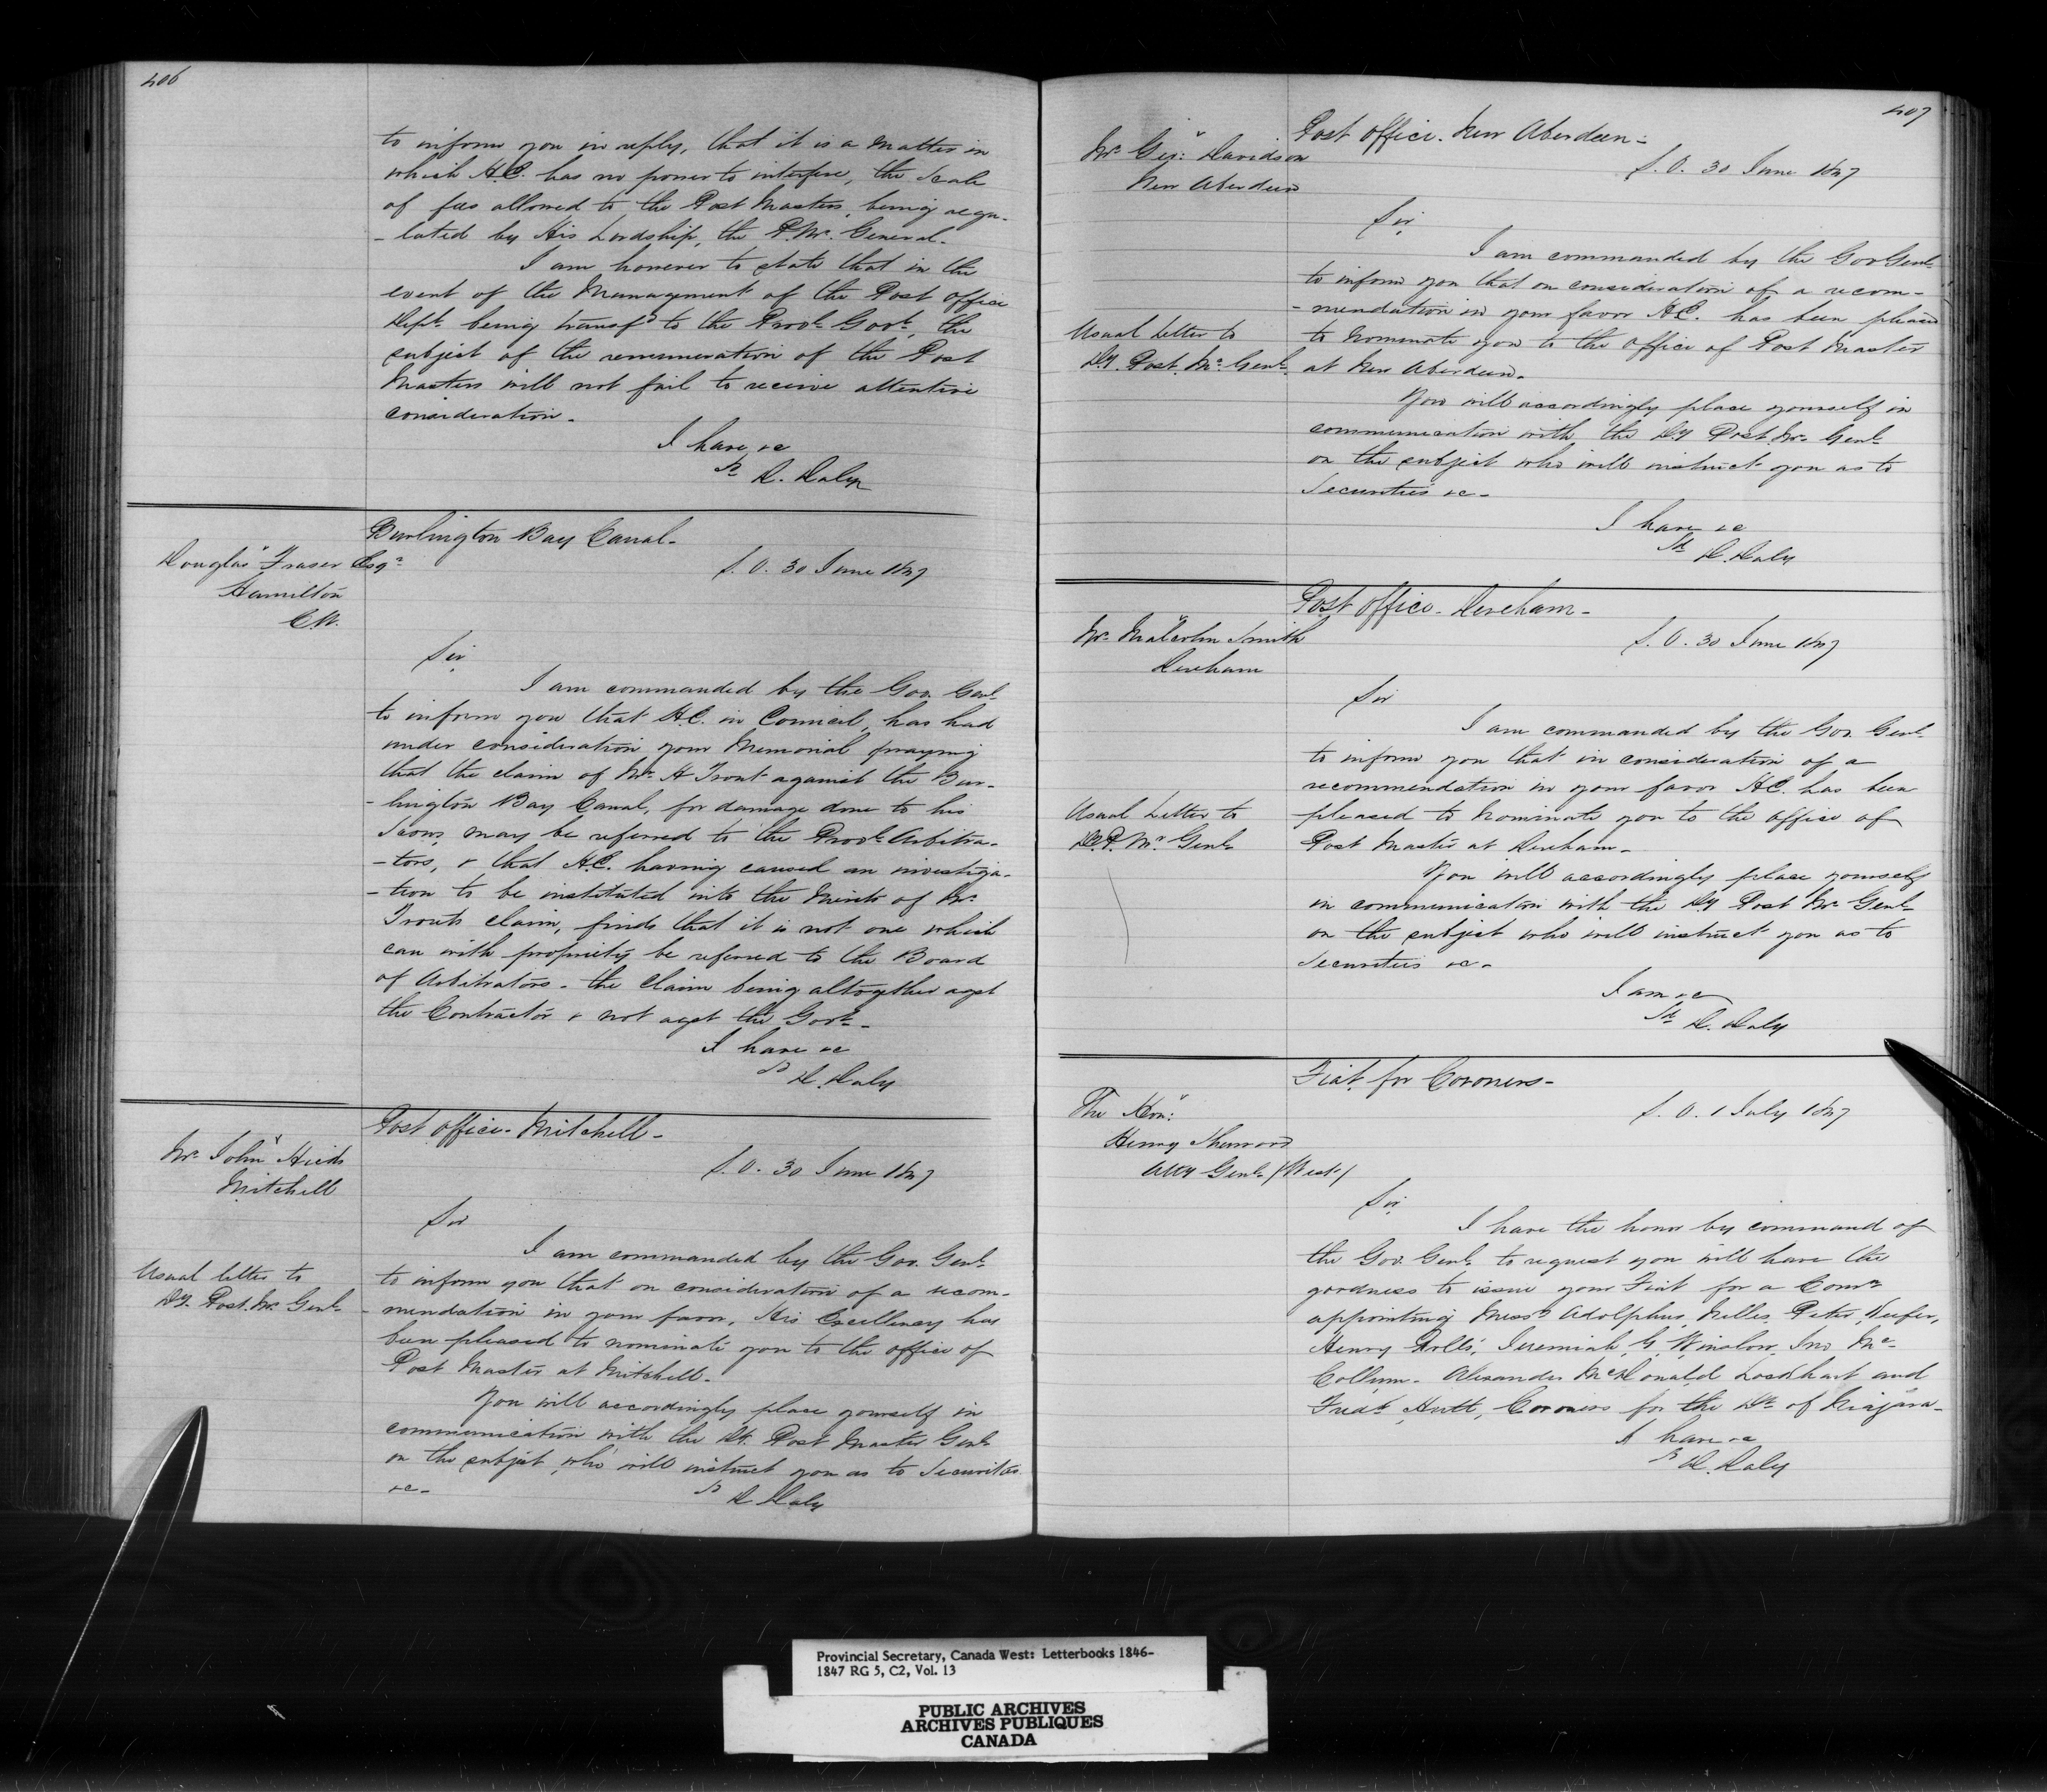 406
to inform you in reply, that it is a matter in
which H.E. has no power to interfere, the Scale
of fees allowed to the Post Masters, being regu-
-lated by His Lordship, the P. Mr. General.
I am however to state that in the
event of the Management of the Post Office
Dept. being transfd to the Provl. Govt., the
subject of the remuneration of the Post
Masters will not fail to receive attentive
consideration.
I have &c
Sd D. Daly
Burlington Bay Canal.
Douglas Fraser Esqr
Hamilton
C.W.
S.O. 30 June 1847
Sir
I am commanded by the Gov. Genl.
to inform you that H.E. in Council, has had
under consideration your Memorial praying
that the claim of Mr. H Trout against the Bur-
-lington Bay Canal, for damage done to his
Scows, may be referred to the Provl. Arbitra-
-tors, & that H.E. having caused an investiga-
-tion to be instituted into the Merits of Mr.
Trouts claim, finds that it is not one which
can with propriety be referred to the Board
of Arbitrators - the Claim being altogether agst
the Contractor & not agst the Govt.
I have &c
Sd D. Daly
Post Office - Mitchell -
Mr. John Hicks
Mitchell
S.O. 30 June 1847
Sir
I am commanded by the Gov. Genl.
Usual letter to
Dy. Post. Mr. Genl.
to inform you that on consideration of a recom-
-mendation in your favor, His Excellency has
been pleased to nominate you to the office of
Post Master at Mitchell.
You will accordingly place yourself in
communication with the Dy. Post Master Genl.
on the subject, who will instruct you as to Securities
&c -
Sd D. Daly
407
Post Office - New Aberdeen -
Mr. Geo: Davidson
New Aberdeen
S.O. 30 June 1847
Sir
I am commanded by the Gov Genl.
to inform you that on consideration of a recom-
-mendation in your favor H.E. has been pleased
Usual Letter to
Dy. Post. Mr. Genl.
to nominate you to the office of Post Master
at New Aberdeen.
You will accordingly place yourself in
communication with the Dy Post. Mr. Genl.
on the subject who will instruct you as to
Securities &c -
I have &c
Sd D. Daly
Post Office - Dereham -
Mr. Malcolm Smith
Dereham
S.O. 30 June 1847
Sir
I am commanded by the Gov. Genl.
to inform you that in consideration of a
recommendation in your favor H.E. has been
Usual Letter to
D.P. Mr. Genl.
pleased to nominate you to the office of
Post Master at Dereham -
You will accordingly place yourself
in communication with the Dy Post Mr. Genl.
on the subject who will instruct you as to
Securities &c -
I am &c
Sd D. Daly
Fiat for Coroners -
The Hon:
Henry Sherwood
Atty Genl. (West)
S.O. 1 July 1847
Sir
I have the honor by command of
the Gov. Genl. to request you will have the
goodness to issue your Fiat for a Comn
appointing Messrs Adolphus Nelles, Peter Keefer,
Henry Rolls, Jeremiah G. Winslow, Jno Mc-
Collum - Alexander McDonald Lockhart and
Fredk. Hutt, Coroners for the Dt. of Niagara -
I have &c
Sd D. Daly
Provincial Secretary, Canada West: Letterbooks 1846-
1847 RG 5, C2, Vol. 13
PUBLIC ARCHIVES
ARCHIVES PUBLIQUES
CANADA